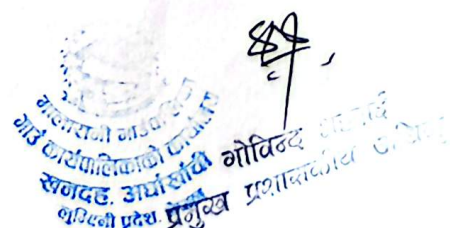 मालारानी गाउँपालिका
गाउँ कार्यपालिकाको कार्यालय
खनदह, अर्घाखाँची
लुम्बिनी प्रदेश
गोविन्द
प्रमुख प्रशासकीय अधिकृत